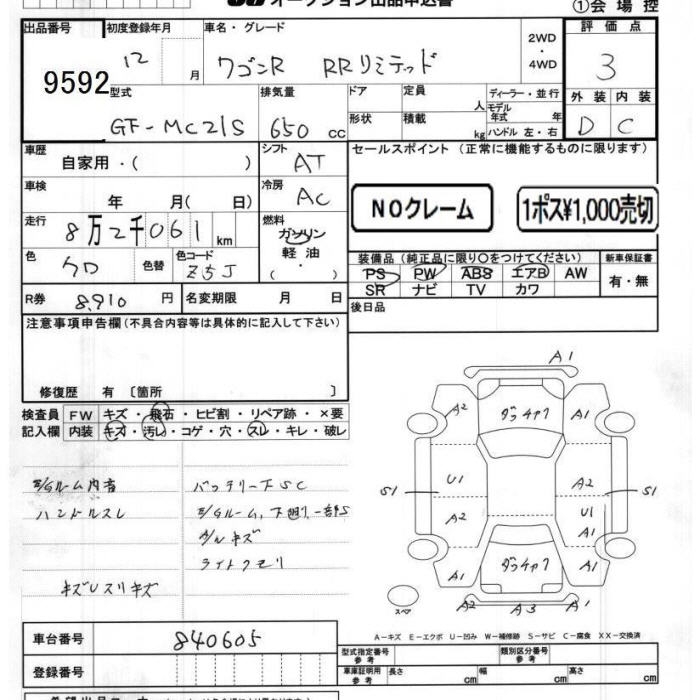 オークション出品申込書
①会場控
出品番号 初度登録年月 車名・グレード 2WD・4WD 評価点
9592 12 月 ワゴンR RRリミテッド 3
型式 排気量 ドア 定員 人 ディーラー・並行 外装 内装
GF-MC21S 650 cc 形状 積載 kg モデル年式 年 ハンドル 左・右 D C
車歴 シフト セールスポイント (正常に機能するものに限ります)
自家用・( ) AT
車検 年 月(日) 冷房 AC NOクレーム 1ポス¥1,000売切
走行 8万2千061 km 燃料 ガソリン 軽油 (・)
色 色替 色コード Z5J
装備品 (純正品に限り○をつけてください) 新車保証書
PS PW ABS エアB AW 有・無
SR ナビ TV カワ
R券 8,910 円 名変期限 月 日 後日品
注意事項申告欄 (不具合内容等は具体的に記入して下さい)
修復歴 有 〔箇所 〕
検査員 FW キズ・飛石・ヒビ割・リペア跡・×要
記入欄 内装 キズ・汚レ・コゲ・穴・スレ・キレ・破レ
E/Gルーム内音 バッテリー下SC
ハンドルスレ E/Gルーム,下廻り一部S
A/Wキズ
ライトクモリ
キズUスリキズ
A1
A2 A1
U1 A2
S1 A2 U1 S1
A1
A1 A1
スペア A2 A3
A-キズ E-エクボ U-凹み W-補修跡 S-サビ C-腐食 XX-交換済
車台番号 840605
登録番号
型式指定番号 参考 類別区分番号 参考
車庫証明用 参考 長さ cm 幅 cm 高さ cm